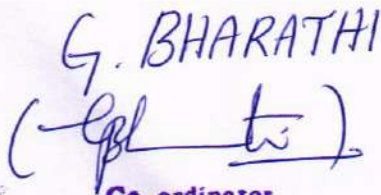 G. BHARATHI
Co-ordinator